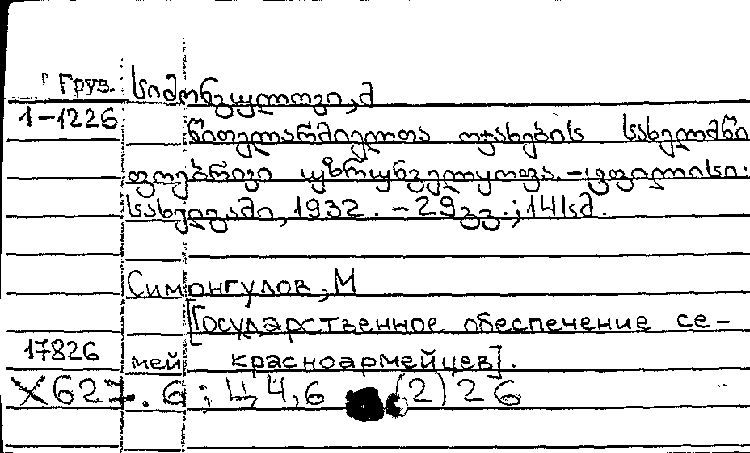 Груз. სიმონგულოვი, მ
1-1226
წითელარმიელთა ოჯახების სახელმწი
ფოებრივი უზრუნველყოფა. – ტფილისი:
სახელგამი, 1932. – 29 გვ.; 14 სმ.
Симонгулов, М
[Государственное обеспечение се-
17826 мей красноармейцев].
X627.6; Ц4,6 (2)26